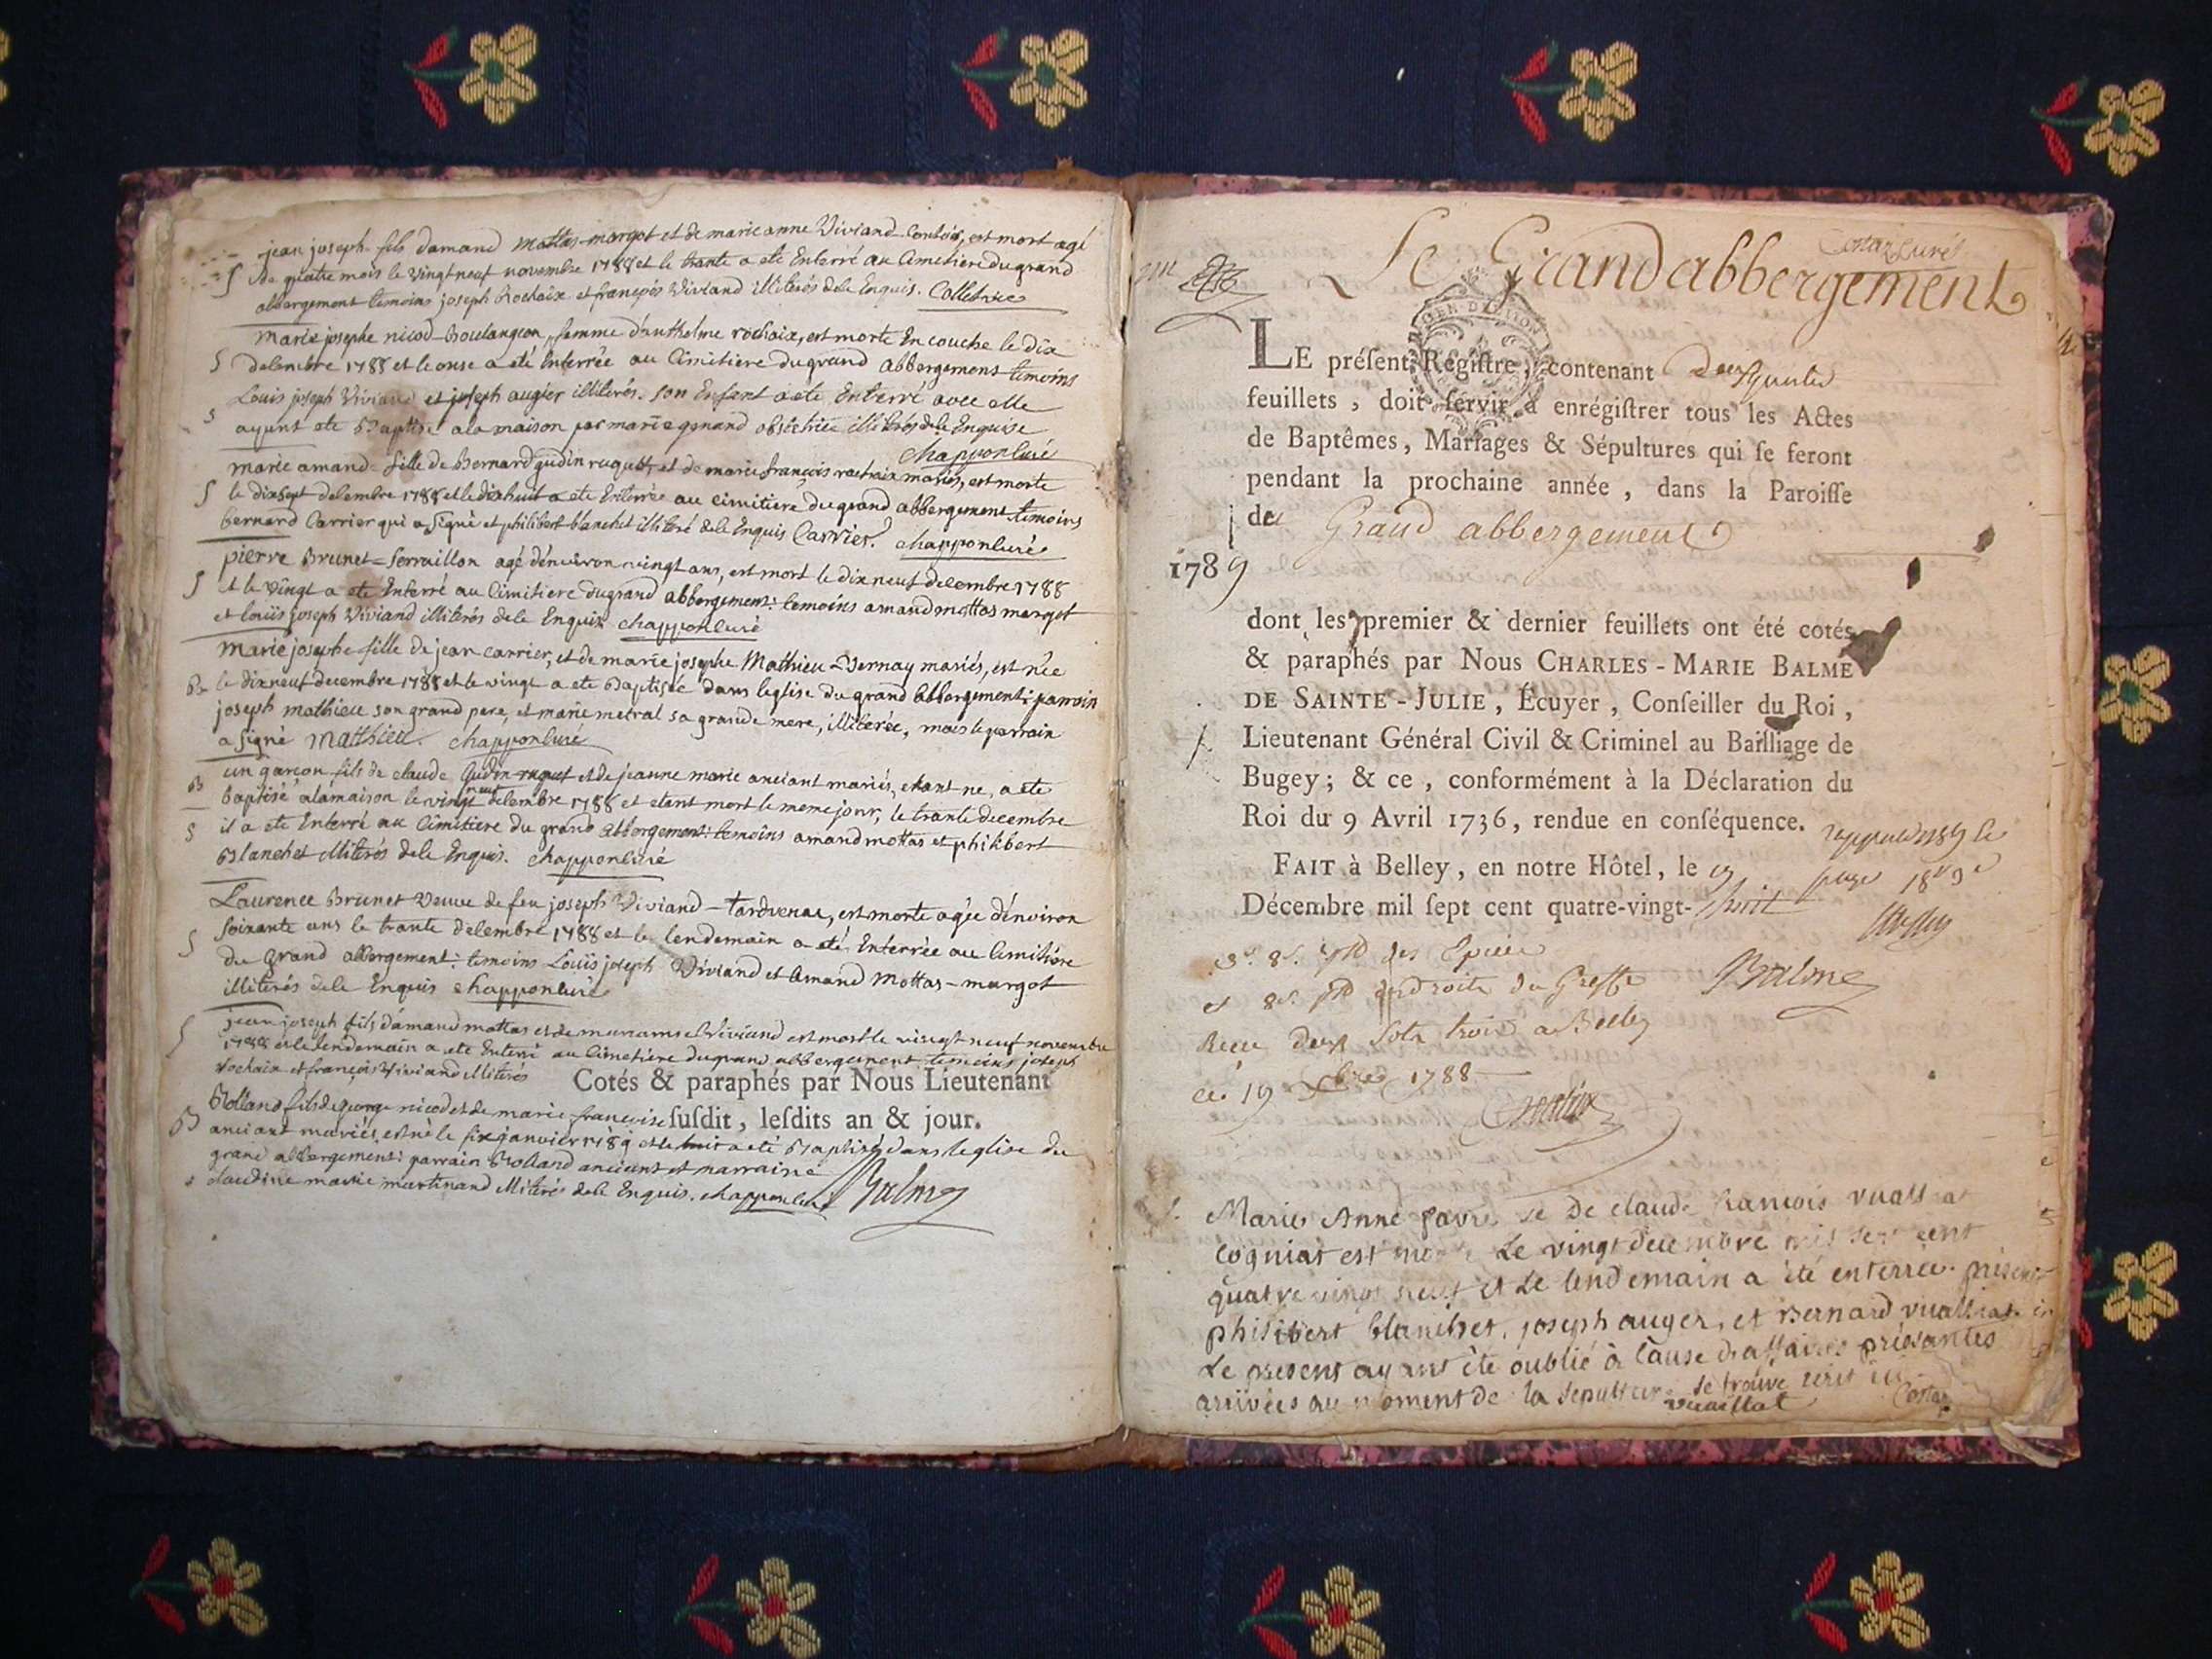 jean joseph fils damand mottas margot et de marie anne Viviand, est mort agé
de quatre mois le vingt neuf novembre 1788 et le trante a ete Enterré au Cimetiere du grand
abbergement temoins joseph Rochaix et francois Viviand illiterés de le Enquis.
marie josephe nicod Boulangeon, femme d'anthelme rochaix, est morte En couche le dix
decembre 1788 et le onse a eté Enterrée au Cimitiere du grand abbergement temoins
Louis joseph Viviand et joseph augier illiterés. son Enfant a ete Enterré avec elle
ayant ete Baptisé a la maison par marie genand illiterés de le Enquise
chappon Curé
marie amand fille de Bernard gudin ruguet et de marie francois rochaix mariés, est morte
S le dix sept decembre 1788 et le dix huit a ete Enterrée au cimitiere du grand abbergement temoins
bernard Carrier qui a signé et philibert blanchet illiteré de le Enquis Carrier. chappon Curé
pierre Brunet=Serraillon agé d'environ vingt ans, est mort le dix neuf decembre 1788
S et le vingt a ete Enterré au Cimitiere du grand abbergement: temoins amand mottas margot
et louis joseph Viviand illiterés de le Enquis chappon Curé
marie josephe fille de jean carrier, et de marie josephe Mathieu=Dernay mariés, est née
le dix neuf decembre 1788 et le vingt a ete Baptisée dans leglise du grand abbergement: parrain
joseph mathieu son grand pere, et marie metral sa grande mere, illiterée, mais le parrain
a signé Mathieu. chappon Curé
B un garcon fils de claude Gudin ruguet et de jeanne marie anciant mariés, etant ne, a ete
baptisé a la maison le vingt neuf decembre 1788 et etant mort le meme jour, le trante decembre
S il a ete Enterré au Cimitiere du grand abbergement: temoins amand mottas et philibert
Blanchet illiterés de le Enquis. chappon Curé
Laurence Brunet Veuve de feu joseph Viviand - tardvenac, est morte agée d'environ
S soixante ans le trante decembre 1788 et le lendemain a eté Enterrée au Cimitiere
du grand abbergement: temoins Louis joseph Viviand et Amand Mottas-margot
illiterés de le Enquis chappon Curé
S jean joseph fils d'amand mottas et de marianne Viviand est mort le vingt neuf novembre
1788 et le lendemain a ete Enterré au Cimetiere du grand abbergement temoins joseph
rochaix et francois Viviand illiterés
Cotés & paraphés par Nous Lieutenant
Rolland fils de george nicod et de marie francoise
susdit, lesdits an & jour.
B anciant mariés, est né le six janvier 1789 et le huit a eté Baptisé dans leglise du
grand abbergement: parrain Rolland anciant et marraine
claudine marie martinand illiterés de le Enquis. chappon Curé Balme
Costaz Curé
Le Grand abbergement
LE présent Registre, contenant
feuillets, doit servir à enrégistrer tous les Actes
de Baptêmes, Mariages & Sépultures qui se feront
pendant la prochaine année, dans la Paroisse
de Grand abbergement
1789
dont les premier & dernier feuillets ont été cotés
& paraphés par Nous CHARLES-MARIE BALME
DE SAINTE-JULIE, Écuyer, Conseiller du Roi,
Lieutenant Général Civil & Criminel au Bailliage de
Bugey; & ce, conformément à la Déclaration du
Roi du 9 Avril 1736, rendue en conséquence.
FAIT à Belley, en notre Hôtel, le 19
Décembre mil sept cent quatre-vingt-huit
Balme
droits du Greffe
Recu deux sols trois a Belley
ce 19 Xbre 1788
Marie Anne favre de claude francois vuaillat
cogniat est morte Le vingt decembre mil sept cent
quatre vingt neuf et Le lendemain a été enterrée. présents
philibert blanchet, joseph auger, et Bernard vuaillat
Le present ayant été oublié à cause d'affaires présantes
arrivées au moment de la sepulture se trouve écrit ici
vuaillat Costaz